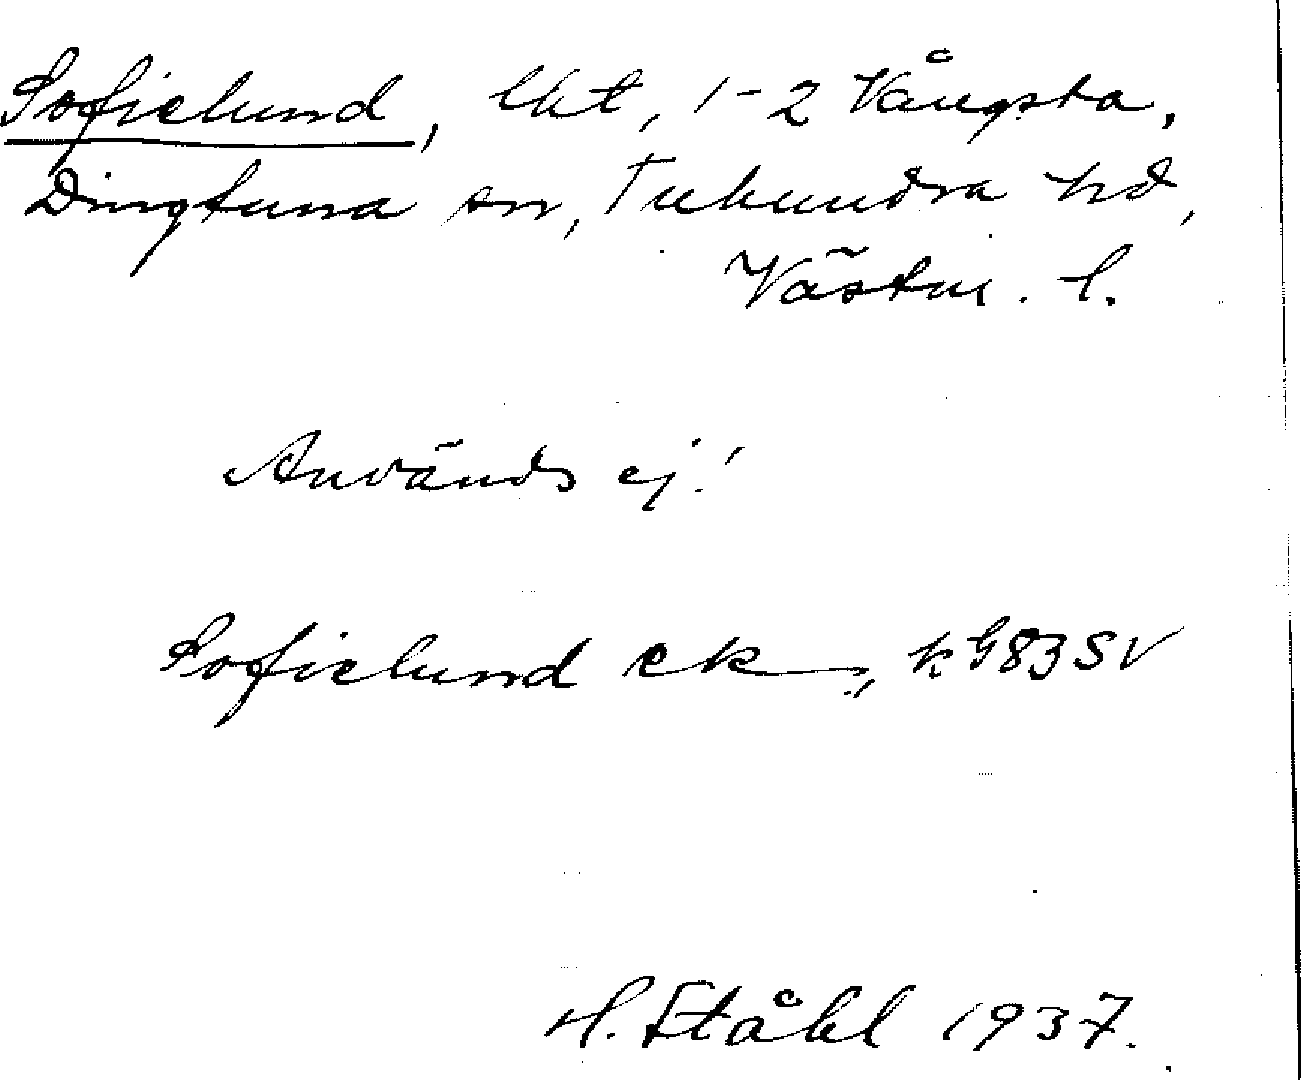 Sofielund, lht, 1-2 Vångsta,
Dingtuna sn, Tuhundra hd,
Västm. l.
Används ej!
Sofielund ek, k. G83SV
H. Ståhl 1937.